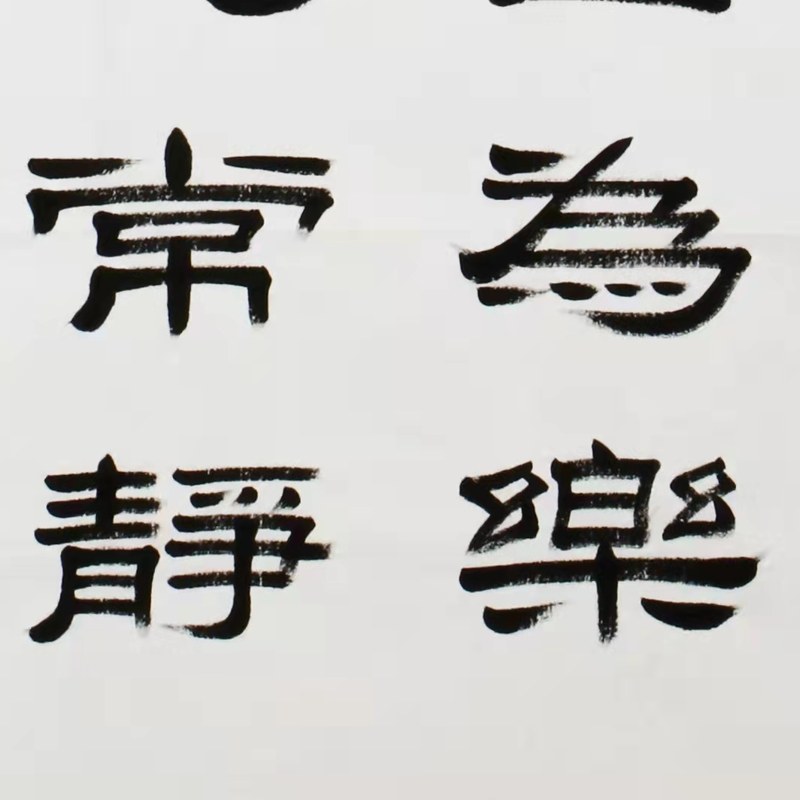 為樂
常靜